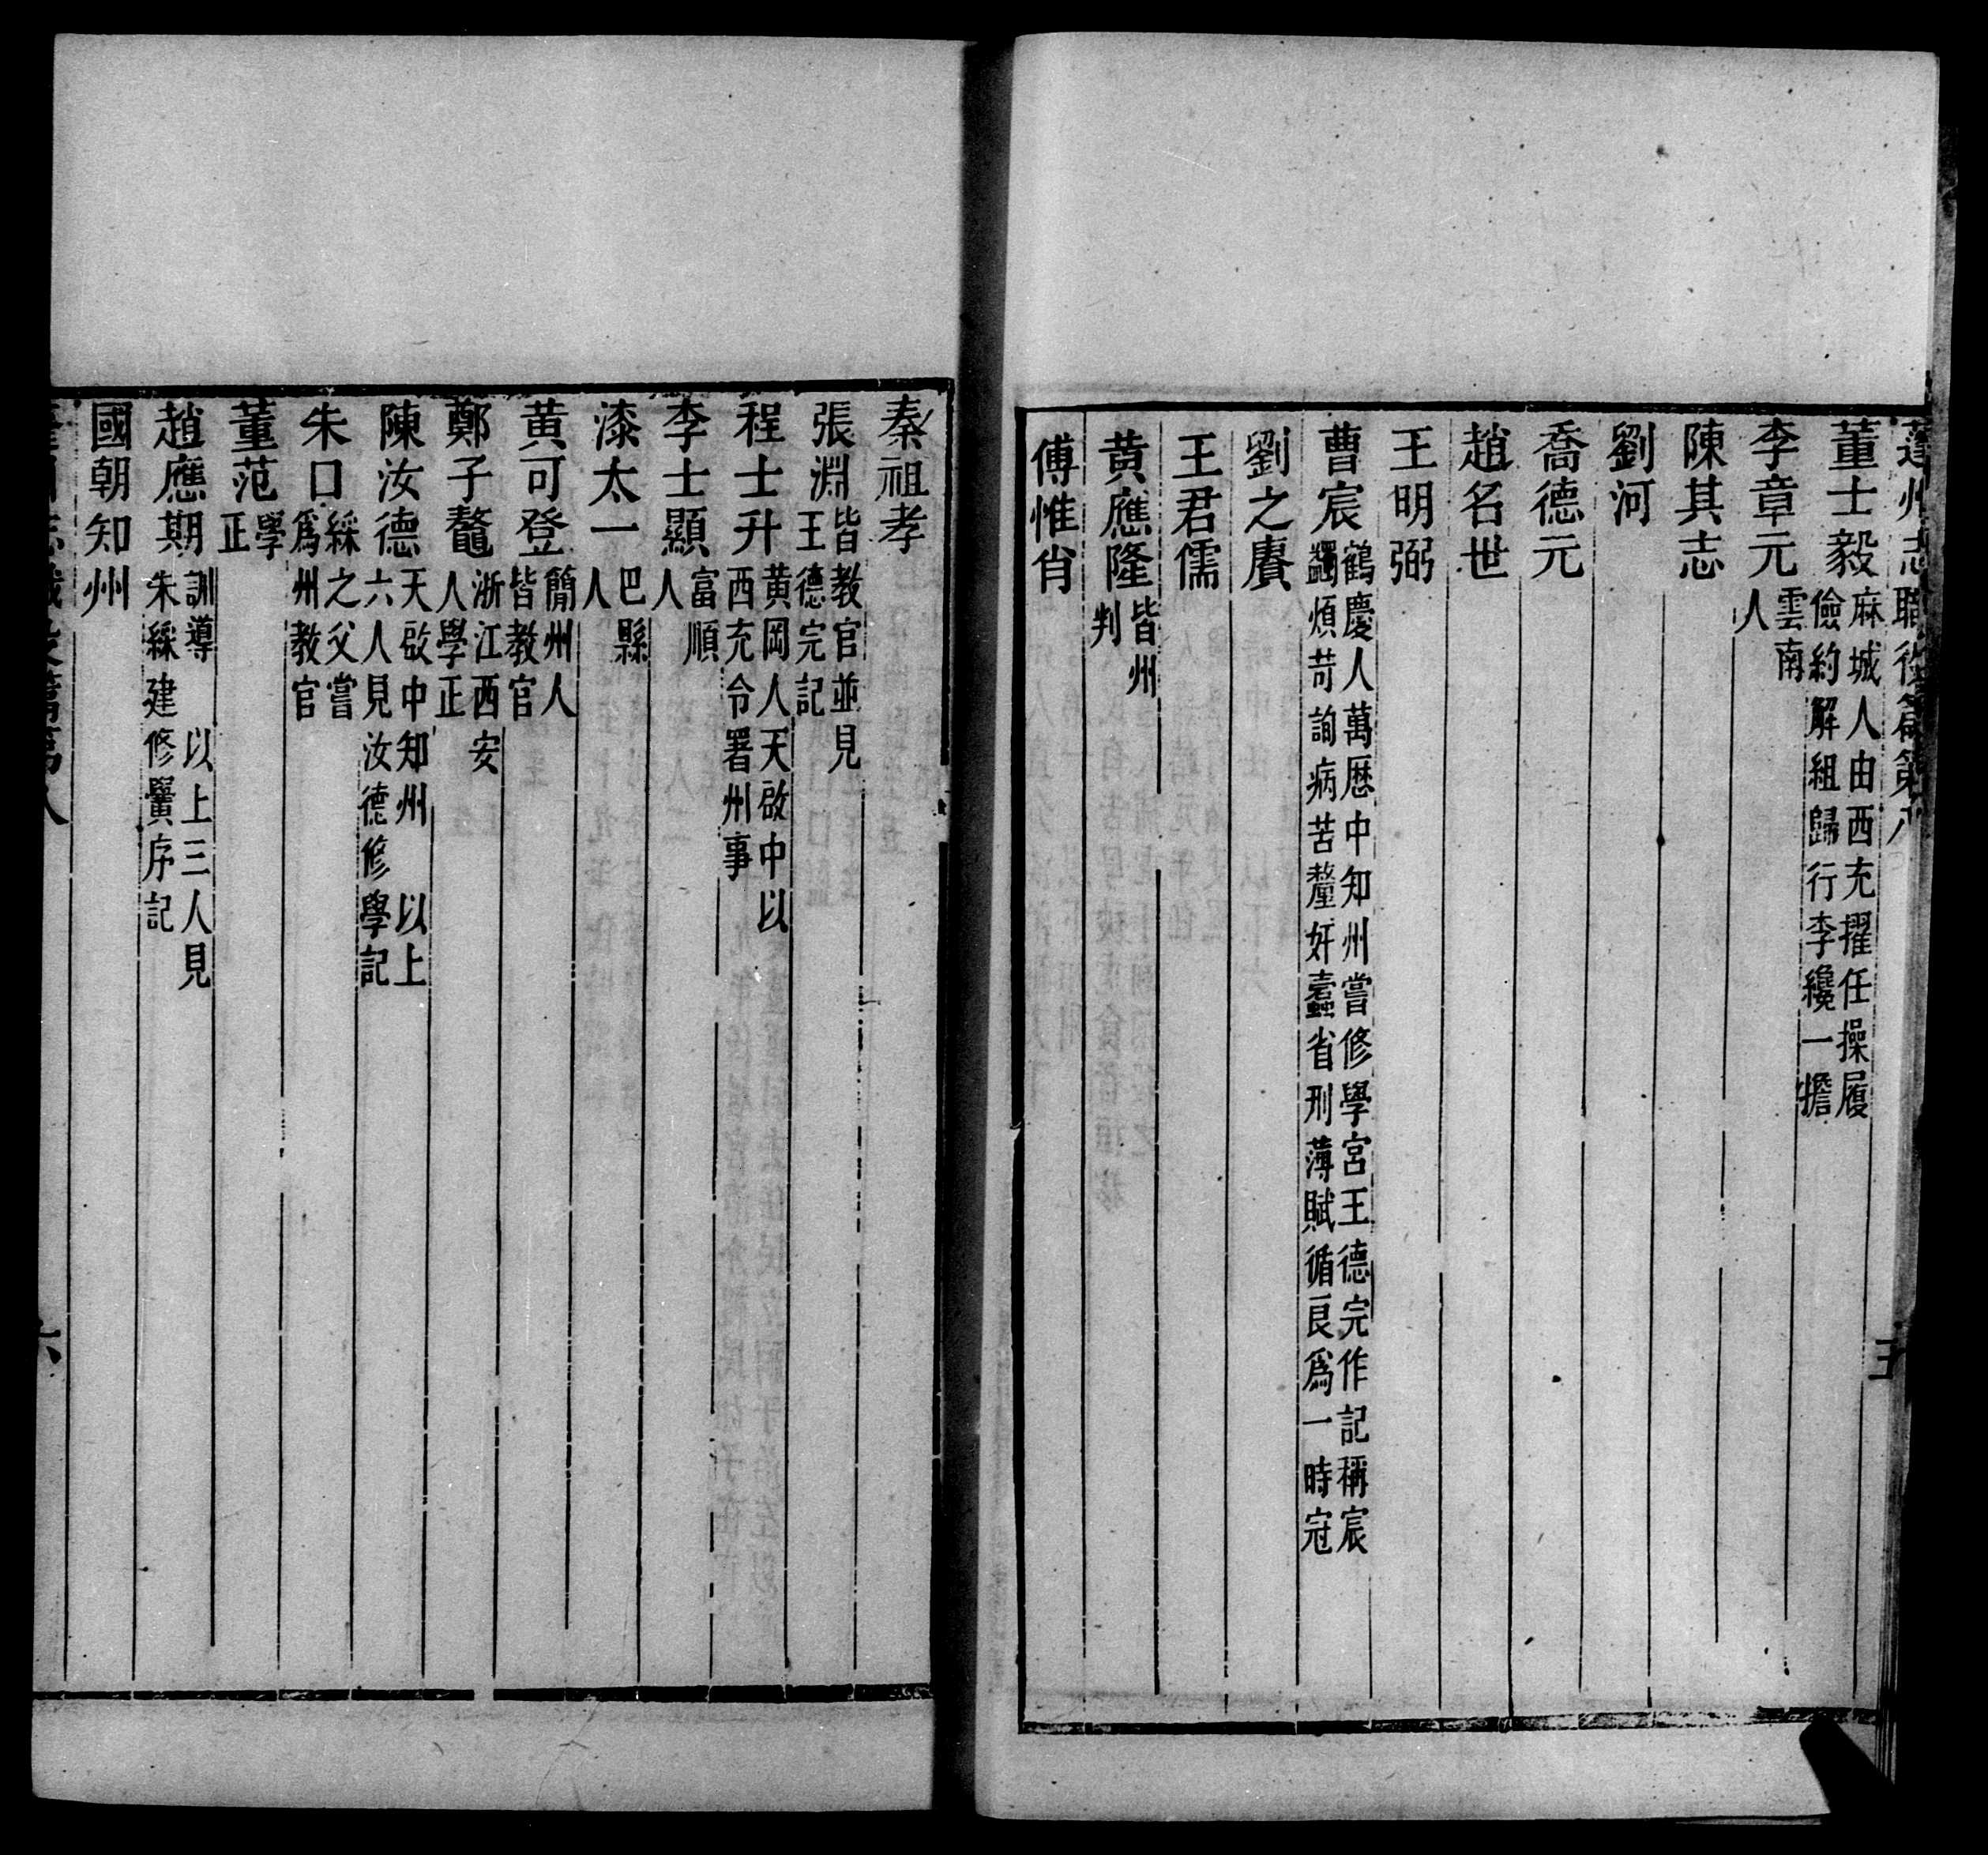 蓬州志職官篇第八 五
董士毅麻城人由西充擢任操履儉約解組歸行李纔一擔
李章元雲南人
陳其志
劉河
喬德元
趙名世
王明弼
曹宸鶴慶人萬厯中知州嘗修學宮王德完作記稱宸蠲煩苛詢病苦釐奸蠹省刑薄賦循良爲一時冠
劉之賡
王君儒
黄應隆皆州判
傅惟肖
秦祖孝
張淵皆教官並見王德完記
程士升黄岡人天啟中以西充令署州事
李士顯富順人
漆太一巴縣人
黄可登簡州人皆教官
鄭子鼇浙江西安人學正
陳汝德天啟中知州 以上六人見汝德修學記
朱口綵之父嘗爲州教官
董范學正
趙應期訓導 以上三人見朱綵建修黌序記
國朝知州
六